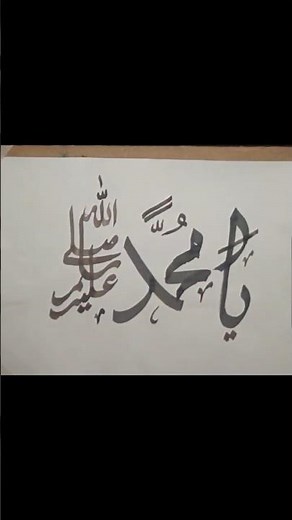 يا محمدً
صلى الله عليه وسلم